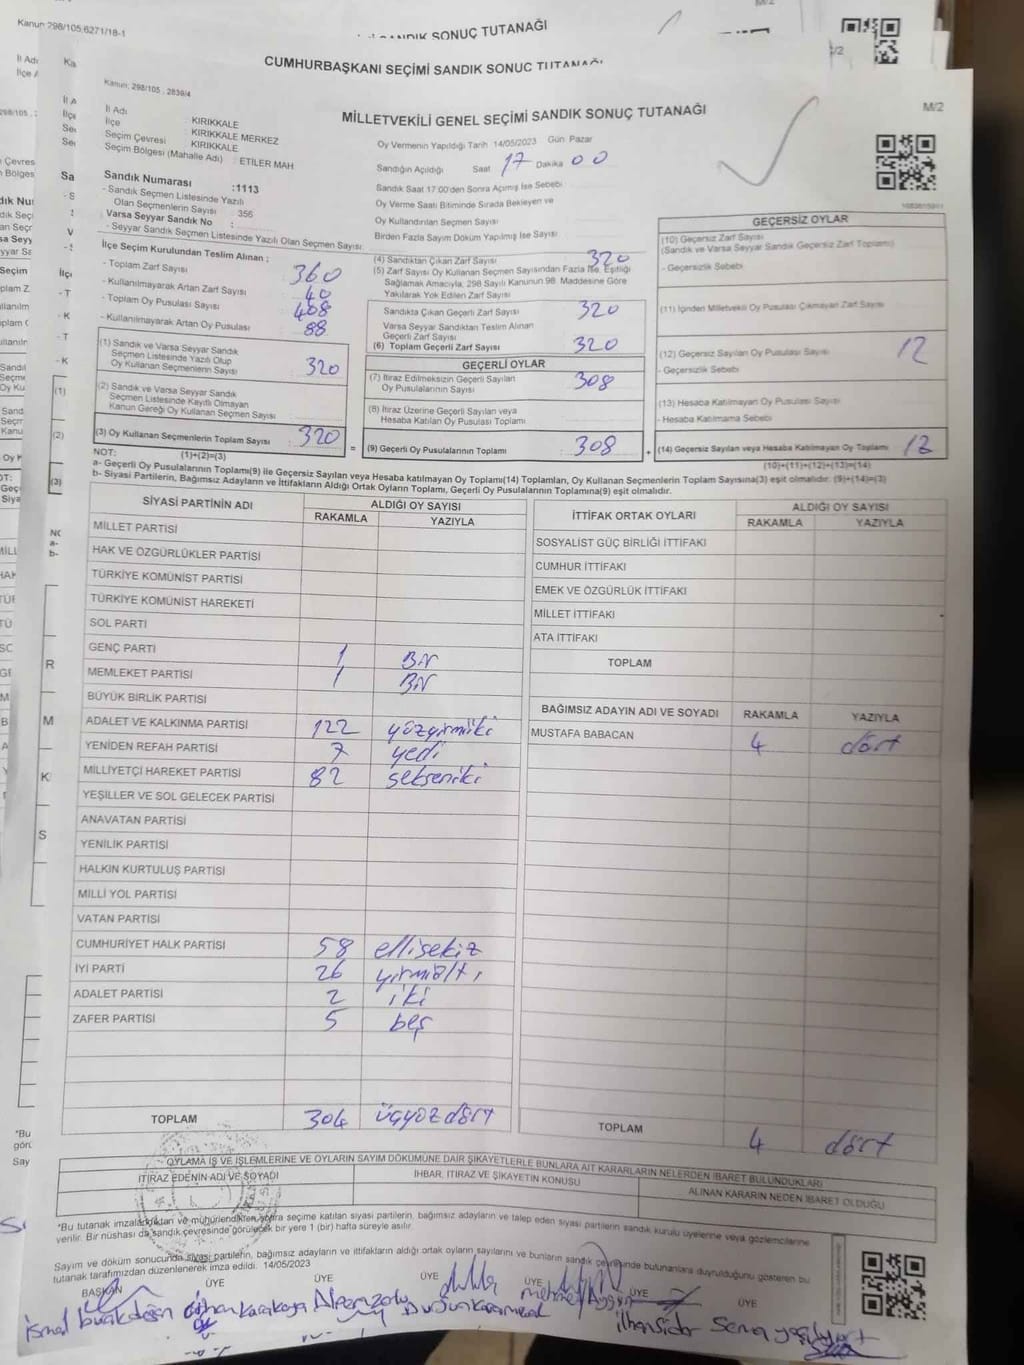 Kanun 298/105.6271/18-1
SANDIK SONUÇ TUTANAĞI
CUMHURBAŞKANI SEÇİMİ SANDIK SONUÇ TUTANAĞI
Kanun; 298/105 , 2839/4
M/2
MİLLETVEKİLİ GENEL SEÇİMİ SANDIK SONUÇ TUTANAĞI
İl Adı : KIRIKKALE
İlçe : KIRIKKALE MERKEZ
Seçim Çevresi : KIRIKKALE
Seçim Bölgesi (Mahalle Adı) : ETİLER MAH
Oy Vermenin Yapıldığı Tarih 14/05/2023 Gün Pazar
Sandığın Açıldığı Saat 17 Dakika 00
Sandık Saat 17:00'den Sonra Açılmış İse Sebebi
Oy Verme Saati Bitiminde Sırada Bekleyen ve
Oy Kullandırılan Seçmen Sayısı
Birden Fazla Sayım Döküm Yapılmış İse Sayısı
Sandık Numarası :1113
- Sandık Seçmen Listesinde Yazılı
Olan Seçmenlerin Sayısı : 356
Varsa Seyyar Sandık No :
- Seyyar Sandık Seçmen Listesinde Yazılı Olan Seçmen Sayısı:
İlçe Seçim Kurulundan Teslim Alınan ;
- Toplam Zarf Sayısı 360
- Kullanılmayarak Artan Zarf Sayısı 40
- Toplam Oy Pusulası Sayısı 408
- Kullanılmayarak Artan Oy Pusulası 88
(1) Sandık ve Varsa Seyyar Sandık
Seçmen Listesinde Yazılı Olup
Oy Kullanan Seçmenlerin Sayısı 320
(2) Sandık ve Varsa Seyyar Sandık
Seçmen Listesinde Kayıtlı Olmayan
Kanun Gereği Oy Kullanan Seçmen Sayısı
(3) Oy Kullanan Seçmenlerin Toplam Sayısı : 320
(1)+(2)=(3)
(4) Sandıktan Çıkan Zarf Sayısı 320
(5) Zarf Sayısı Oy Kullanan Seçmen Sayısından Fazla İse, Eşitliği
Sağlamak Amacıyla, 298 Sayılı Kanunun 98. Maddesine Göre
Yakılarak Yok Edilen Zarf Sayısı
Sandıkta Çıkan Geçerli Zarf Sayısı 320
Varsa Seyyar Sandıktan Teslim Alınan
Geçerli Zarf Sayısı
(6) Toplam Geçerli Zarf Sayısı 320
GEÇERLİ OYLAR
(7) İtiraz Edilmeksizin Geçerli Sayılan
Oy Pusulalarının Sayısı 308
(8) İtiraz Üzerine Geçerli Sayılan veya
Hesaba Katılan Oy Pusulası Toplamı
= (9) Geçerli Oy Pusulalarının Toplamı 308
GEÇERSİZ OYLAR
(10) Geçersiz Zarf Sayısı
(Sandık ve Varsa Seyyar Sandık Geçersiz Zarf Toplamı)
- Geçersizlik Sebebi
(11) İçinden Milletvekili Oy Pusulası Çıkmayan Zarf Sayısı
(12) Geçersiz Sayılan Oy Pusulası Sayısı 12
- Geçersizlik Sebebi
(13) Hesaba Katılmayan Oy Pusulası Sayısı
- Hesaba Katılmama Sebebi
+ (14) Geçersiz Sayılan veya Hesaba Katılmayan Oy Toplamı 12
(10)+(11)+(12)+(13)=(14)
NOT:
a- Geçerli Oy Pusulalarının Toplamı(9) ile Geçersiz Sayılan veya Hesaba katılmayan Oy Toplamı(14) Toplamları, Oy Kullanan Seçmenlerin Toplam Sayısına(3) eşit olmalıdır. (9)+(14)=(3)
b- Siyasi Partilerin, Bağımsız Adayların ve İttifakların Aldığı Ortak Oyların Toplamı, Geçerli Oy Pusulalarının Toplamına(9) eşit olmalıdır.
SİYASİ PARTİNİN ADI ALDIĞI OY SAYISI
RAKAMLA YAZIYLA
MİLLET PARTİSİ
HAK VE ÖZGÜRLÜKLER PARTİSİ
TÜRKİYE KOMÜNİST PARTİSİ
TÜRKİYE KOMÜNİST HAREKETİ
SOL PARTİ
GENÇ PARTİ 1 Bir
MEMLEKET PARTİSİ 1 Bir
BÜYÜK BİRLİK PARTİSİ
ADALET VE KALKINMA PARTİSİ 122 yüzyirmiiki
YENİDEN REFAH PARTİSİ 7 yedi
MİLLİYETÇİ HAREKET PARTİSİ 82 sekseniki
YEŞİLLER VE SOL GELECEK PARTİSİ
ANAVATAN PARTİSİ
YENİLİK PARTİSİ
HALKIN KURTULUŞ PARTİSİ
MİLLİ YOL PARTİSİ
VATAN PARTİSİ
CUMHURİYET HALK PARTİSİ 58 ellisekiz
İYİ PARTİ 26 yirmialtı
ADALET PARTİSİ 2 iki
ZAFER PARTİSİ 5 beş
TOPLAM 304 üçyüzdört
İTTİFAK ORTAK OYLARI ALDIĞI OY SAYISI
RAKAMLA YAZIYLA
SOSYALİST GÜÇ BİRLİĞİ İTTİFAKI
CUMHUR İTTİFAKI
EMEK VE ÖZGÜRLÜK İTTİFAKI
MİLLET İTTİFAKI
ATA İTTİFAKI
TOPLAM
BAĞIMSIZ ADAYIN ADI VE SOYADI RAKAMLA YAZIYLA
MUSTAFA BABACAN 4 dört
TOPLAM 4 dört
OYLAMA İŞ VE İŞLEMLERİNE VE OYLARIN SAYIM DÖKÜMÜNE DAİR ŞİKAYETLERLE BUNLARA AİT KARARLARIN NELERDEN İBARET BULUNDUKLARI
İTİRAZ EDENİN ADI VE SOYADI İHBAR, İTİRAZ VE ŞİKAYETİN KONUSU ALINAN KARARIN NEDEN İBARET OLDUĞU
*Bu tutanak imzalandıktan ve mühürlendikten sonra seçime katılan siyasi partilerin, bağımsız adayların ve talep eden siyasi partilerin sandık kurulu üyelerine veya gözlemcilerine
verilir. Bir nüshası da sandık çevresinde görülecek bir yere 1 (bir) hafta süreyle asılır.
Sayım ve döküm sonucunda siyasi partilerin, bağımsız adayların ve ittifakların aldığı ortak oyların sayılarını ve bunların sandık çevresinde bulunanlara duyrulduğunu gösteren bu
tutanak tarafımızdan düzenlenerek imza edildi. 14/05/2023
BAŞKAN ÜYE ÜYE ÜYE ÜYE ÜYE